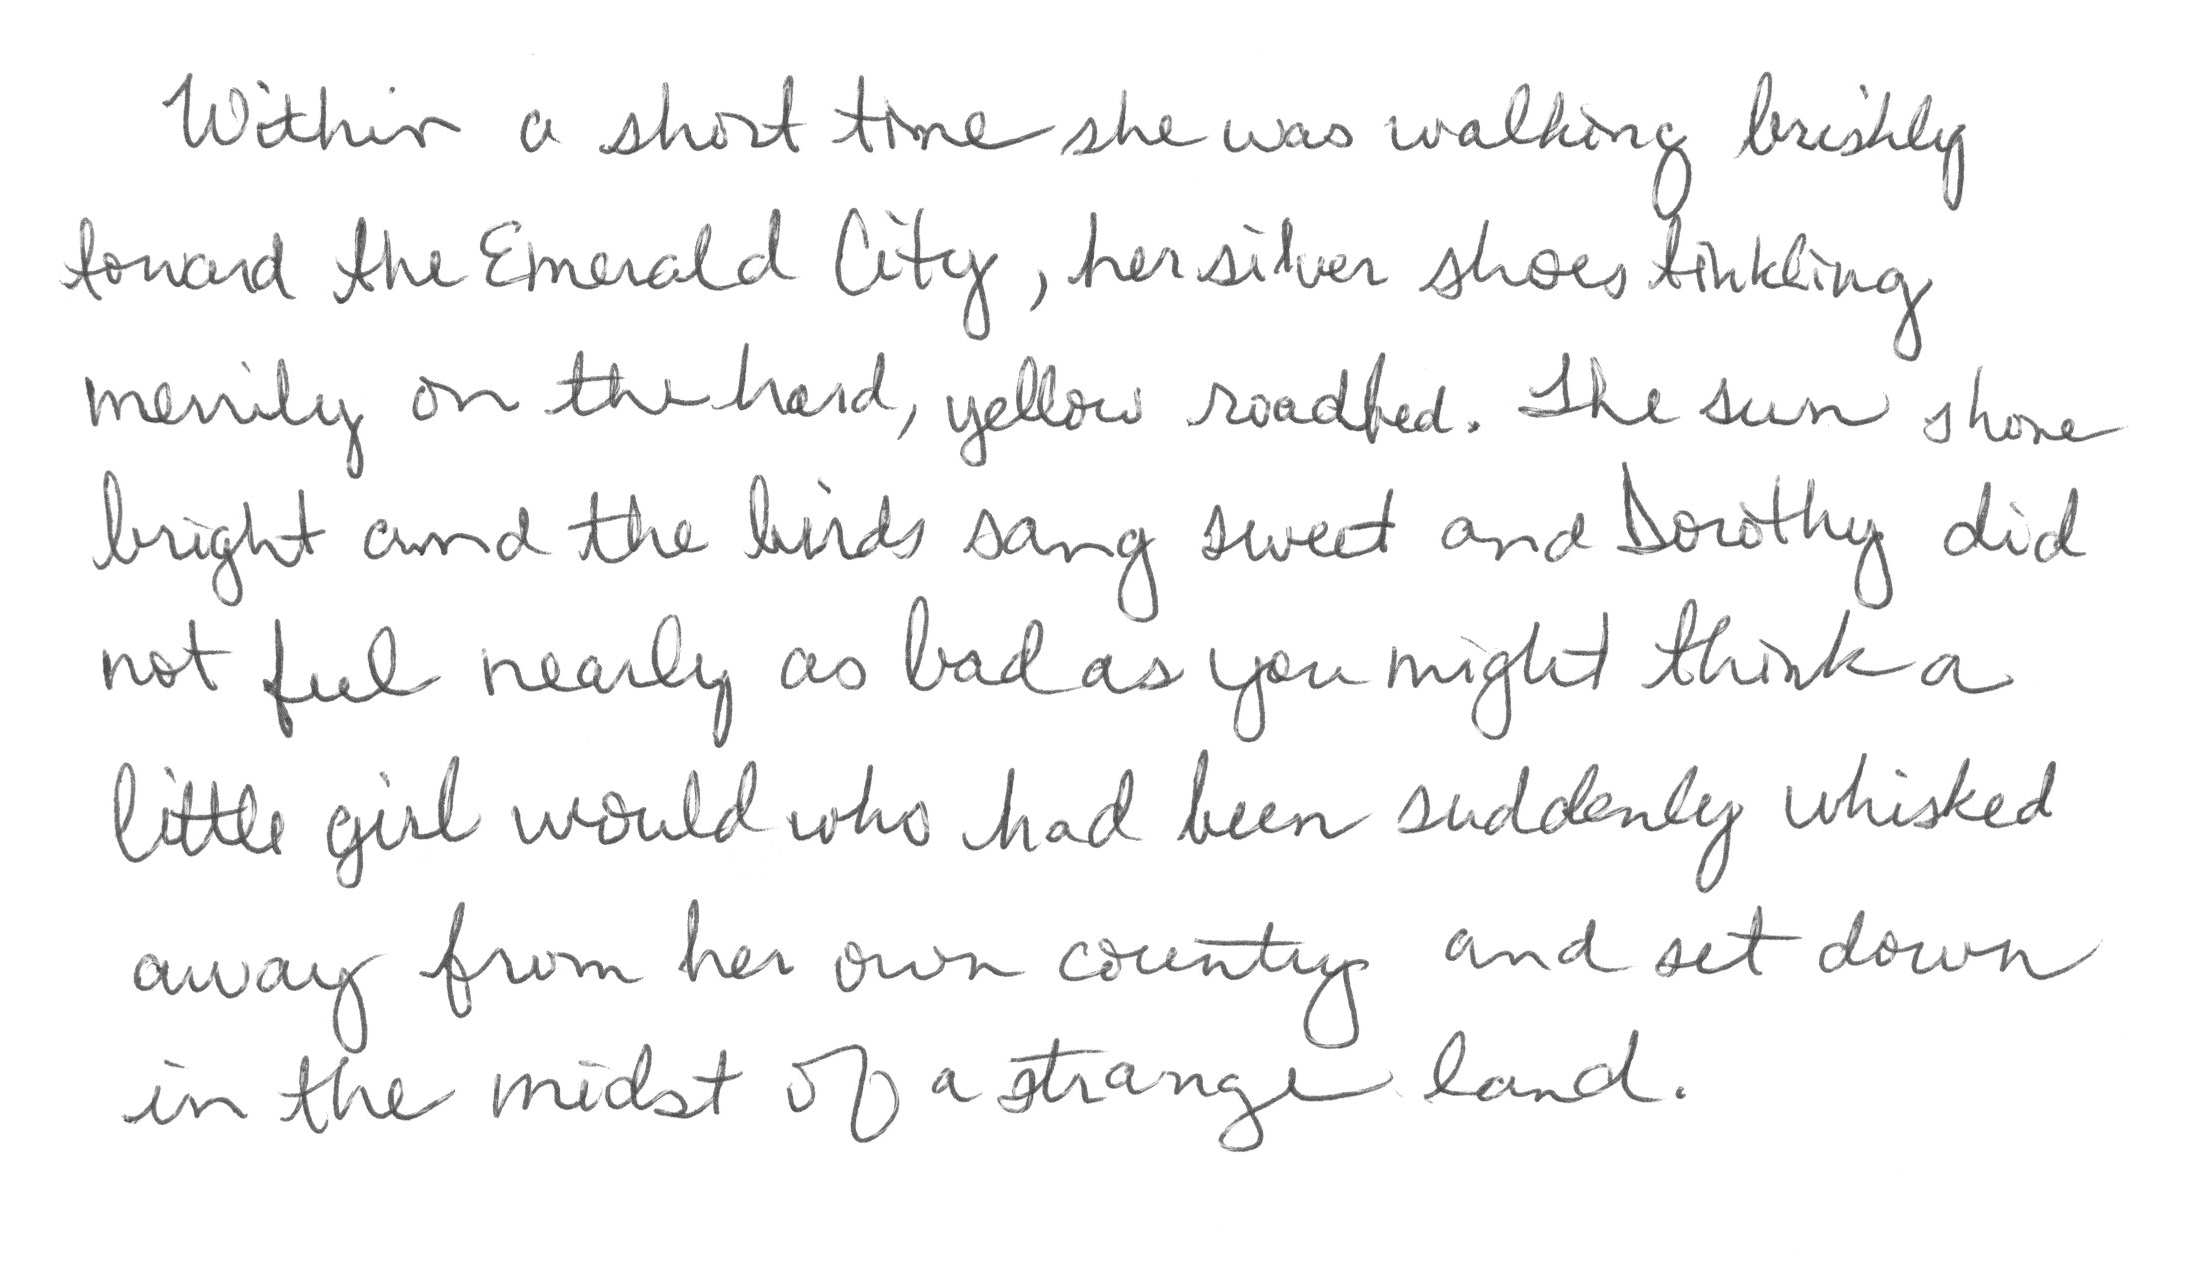 Within a short time she was walking briskly
toward the Emerald City, her silver shoes tinkling
merrily on the hard, yellow roadbed. The sun shone
bright and the birds sang sweet and Dorothy did
not feel nearly as bad as you might think a
little girl would who had been suddenly whisked
away from her own country and set down
in the midst of a strange land.